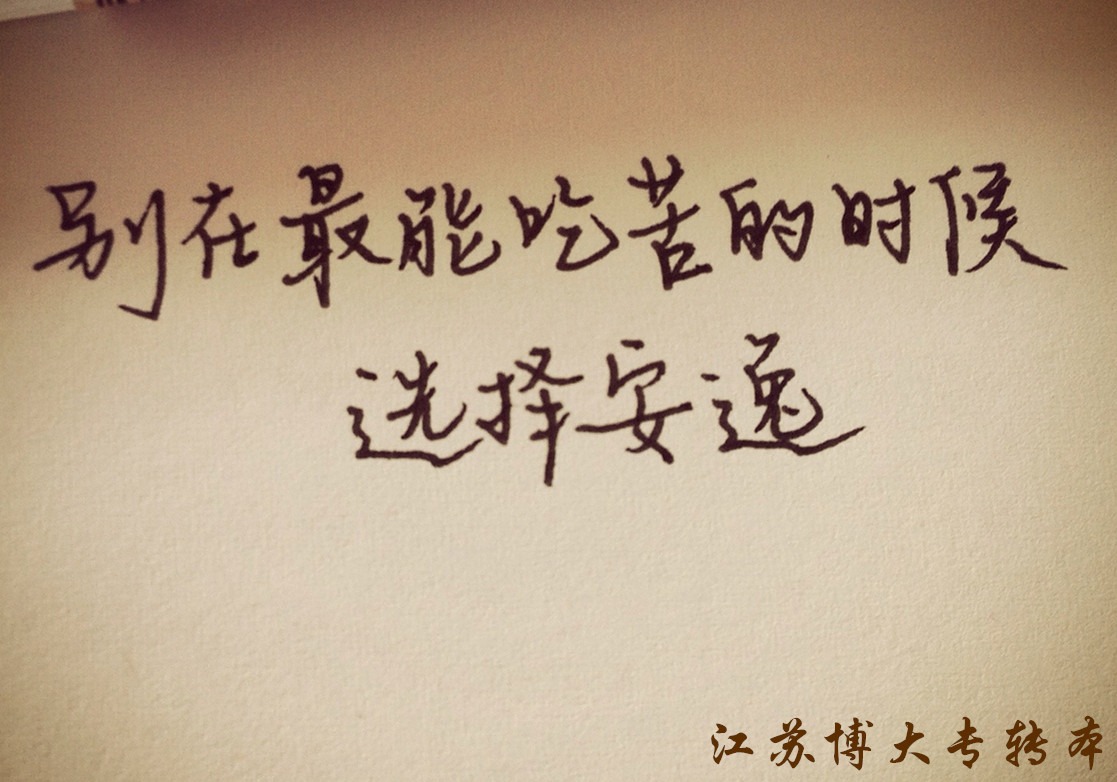 别在最能吃苦的时候
选择安逸
江苏博大专转本